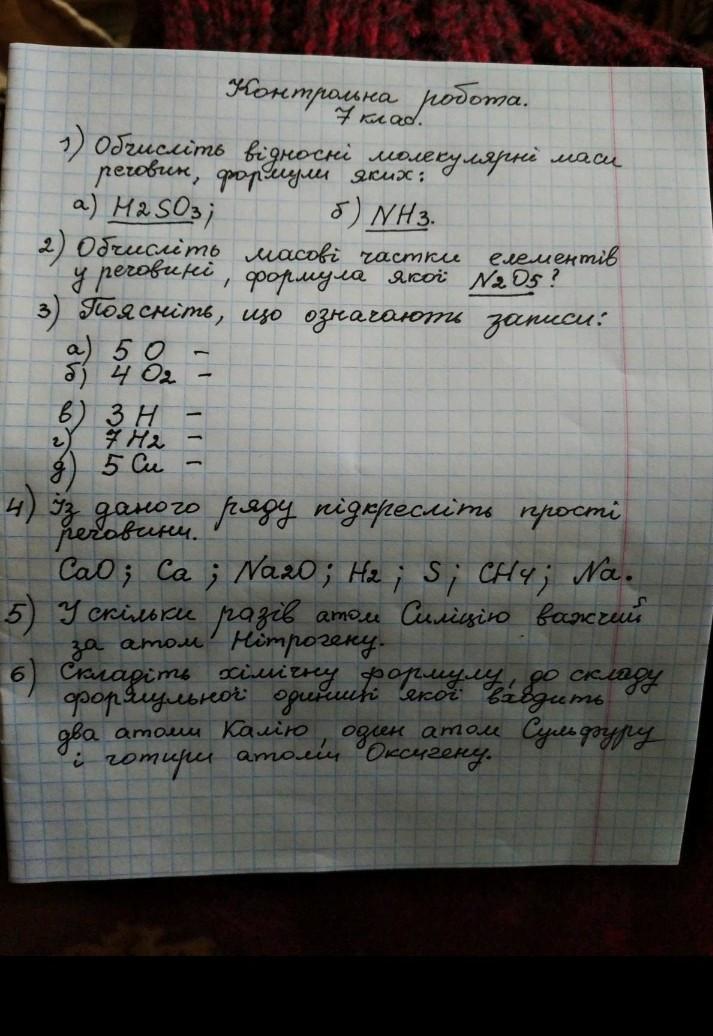 Контрольна робота.
7 клас.
1) Обчисліть відносні молекулярні маси
речовин, формули яких:
а) H2SO3; б) NH3.
2) Обчисліть масові частки елементів
у речовині, формула якої N2O5?
3) Поясніть, що означають записи:
а) 5 O –
б) 4 O2 –
в) 3 H –
г) 7 H2 –
д) 5 Cu –
4) Із даного ряду підкресліть прості
речовини.
CaO; Ca; Na2O; H2; S; CH4; Na.
5) У скільки разів атом Силіцію важчий
за атом Нітрогену.
6) Складіть хімічну формулу, до складу
формульної одиниці якої входить
два атоми Калію, один атом Сульфуру
і чотири атоми Оксигену.